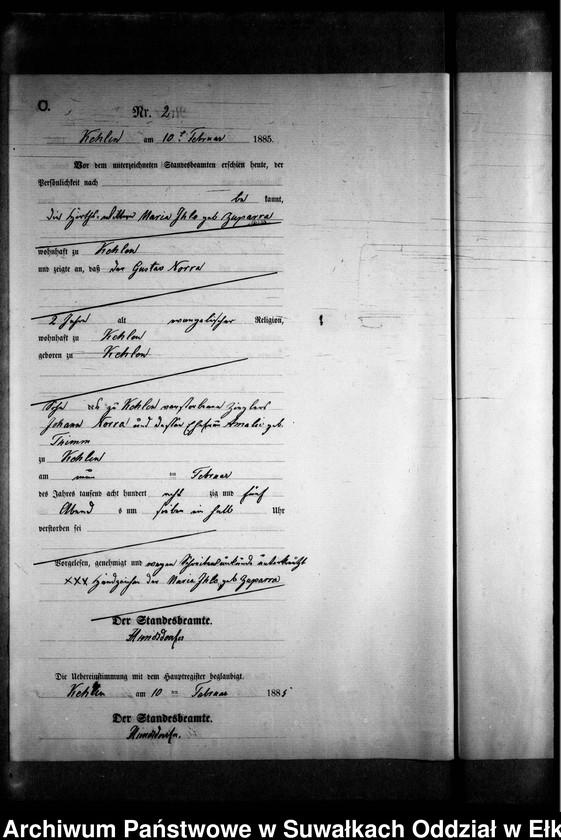 C.
Nr. 2
Kehlen am 10ten Februar 1885.
Vor dem unterzeichneten Standesbeamten erschien heute, der
Persönlichkeit nach
be kannt,
die Maria Ihlo geb. Zaparra
wohnhaft zu Kehlen
und zeigte an, daß der Gustav Norra
2 Jahre alt evangelischer Religion,
wohnhaft zu Kehlen
geboren zu Kehlen
Sohn des zu Kehlen verstorbenen Zieglers
Johann Norra und dessen Ehefrau Amalie geb.
Thimm
zu Kehlen
am neun ten Februar
des Jahres tausend acht hundert acht zig und fünf
Abend s um sieben ein halb Uhr
verstorben sei
Vorgelesen, genehmigt und wegen Schreibensunkunde unterkreuzt
XXX Handzeichen der Maria Ihlo geb. Zaparra
Der Standesbeamte.
Die Uebereinstimmung mit dem Hauptregister beglaubigt.
Kehlen am 10 ten Februar 1885
Der Standesbeamte.
Archiwum Państwowe w Suwałkach Oddział w Ełk